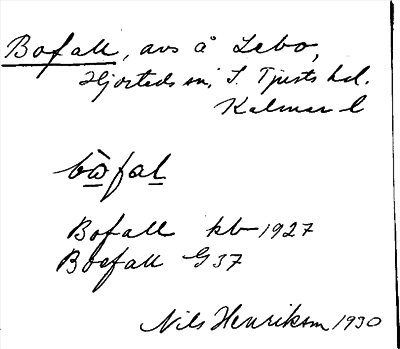 Bofall, avs å Lebo,
Hjorteds sn, S. Tjusts hd.
Kalmar l
bὼfal
Bofall kb 1927
Boefall G 37
Nils Henrikson 1930